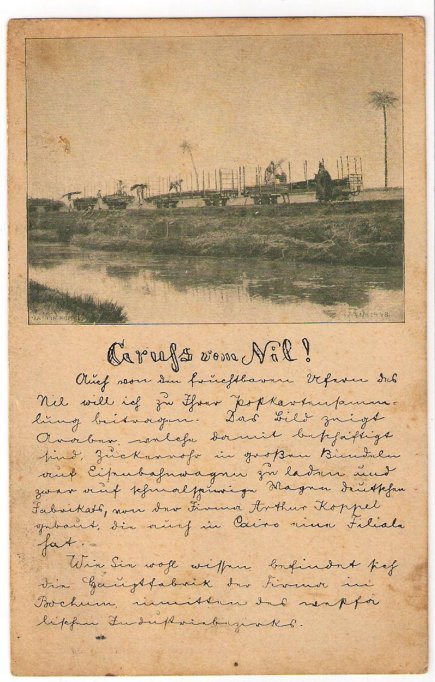 Gruss vom Nil!
Auch von den fruchtbaren Ufern des
Nil will ich zu Ihrer Postkartensamm-
lung beitragen. Das Bild zeigt
Araber, welche damit beschäftigt
sind, Zuckerrohr in großen Bündeln
auf Eisenbahnwagen zu laden und
zwar auf schmalspurige Wagen deutschen
Fabrikats, von der Firma Arthur Koppel
gebaut, die auch in Cairo eine Filiale
hat.
Wie Sie wohl wissen befindet sich
die Hauptfabrik der Firma in
Bochum, inmitten des westfä
lischen Industriebezirks.